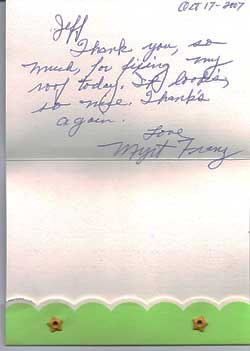 Oct 17-2007
Jeff
Thank you, so
much, for fixing my
roof today. It looks
so nice. Thank's
again.
Love
Myrt Franz